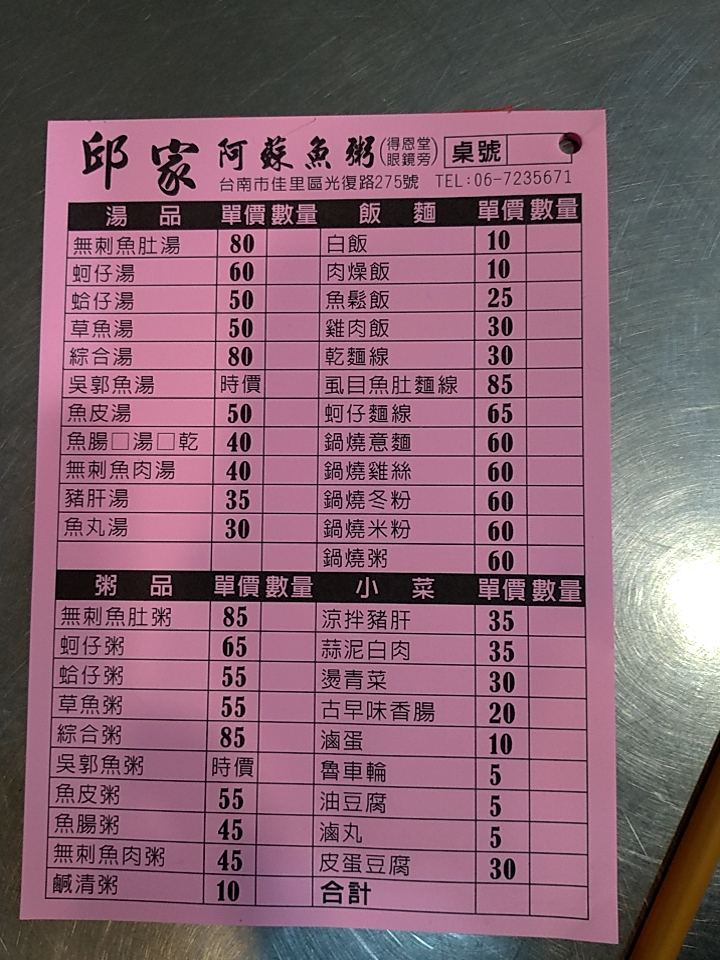 邱家 阿蘇魚粥(得恩堂眼鏡旁) 桌號
台南市佳里區光復路275號 TEL:06-7235671
湯品 單價 數量 飯麵 單價 數量
無刺魚肚湯 80 白飯 10
蚵仔湯 60 肉燥飯 10
蛤仔湯 50 魚鬆飯 25
草魚湯 50 雞肉飯 30
綜合湯 80 乾麵線 30
吳郭魚湯 時價 虱目魚肚麵線 85
魚皮湯 50 蚵仔麵線 65
魚腸□湯□乾 40 鍋燒意麵 60
無刺魚肉湯 40 鍋燒雞絲 60
豬肝湯 35 鍋燒冬粉 60
魚丸湯 30 鍋燒米粉 60
鍋燒粥 60
粥品 單價 數量 小菜 單價 數量
無刺魚肚粥 85 涼拌豬肝 35
蚵仔粥 65 蒜泥白肉 35
蛤仔粥 55 燙青菜 30
草魚粥 55 古早味香腸 20
綜合粥 85 滷蛋 10
吳郭魚粥 時價 魯車輪 5
魚皮粥 55 油豆腐 5
魚腸粥 45 滷丸 5
無刺魚肉粥 45 皮蛋豆腐 30
鹹清粥 10 合計